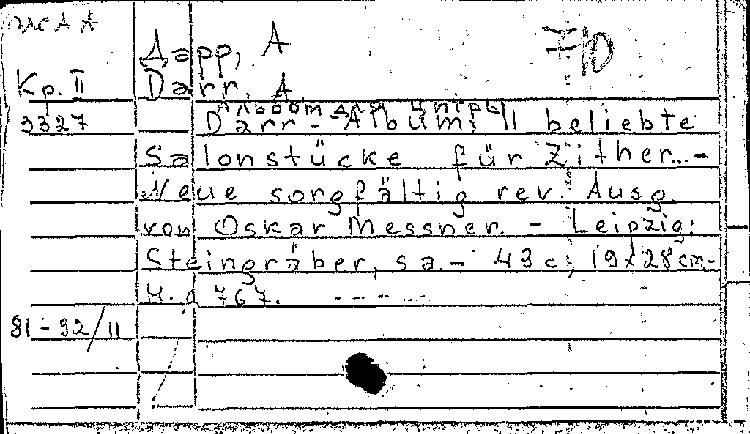 Дарр, А
Кр. II Darr, A.
9327 Альбом для цитры
Darr-Album: 11 beliebte
Salonstücke für Zither. -
Neue sorgfältig rev. Ausg.
von Oskar Messner. - Leipzig:
Steingräber, s.a. - 43 c.; 19x28 cm. -
Н. д 767. - - - - -
81-92/11